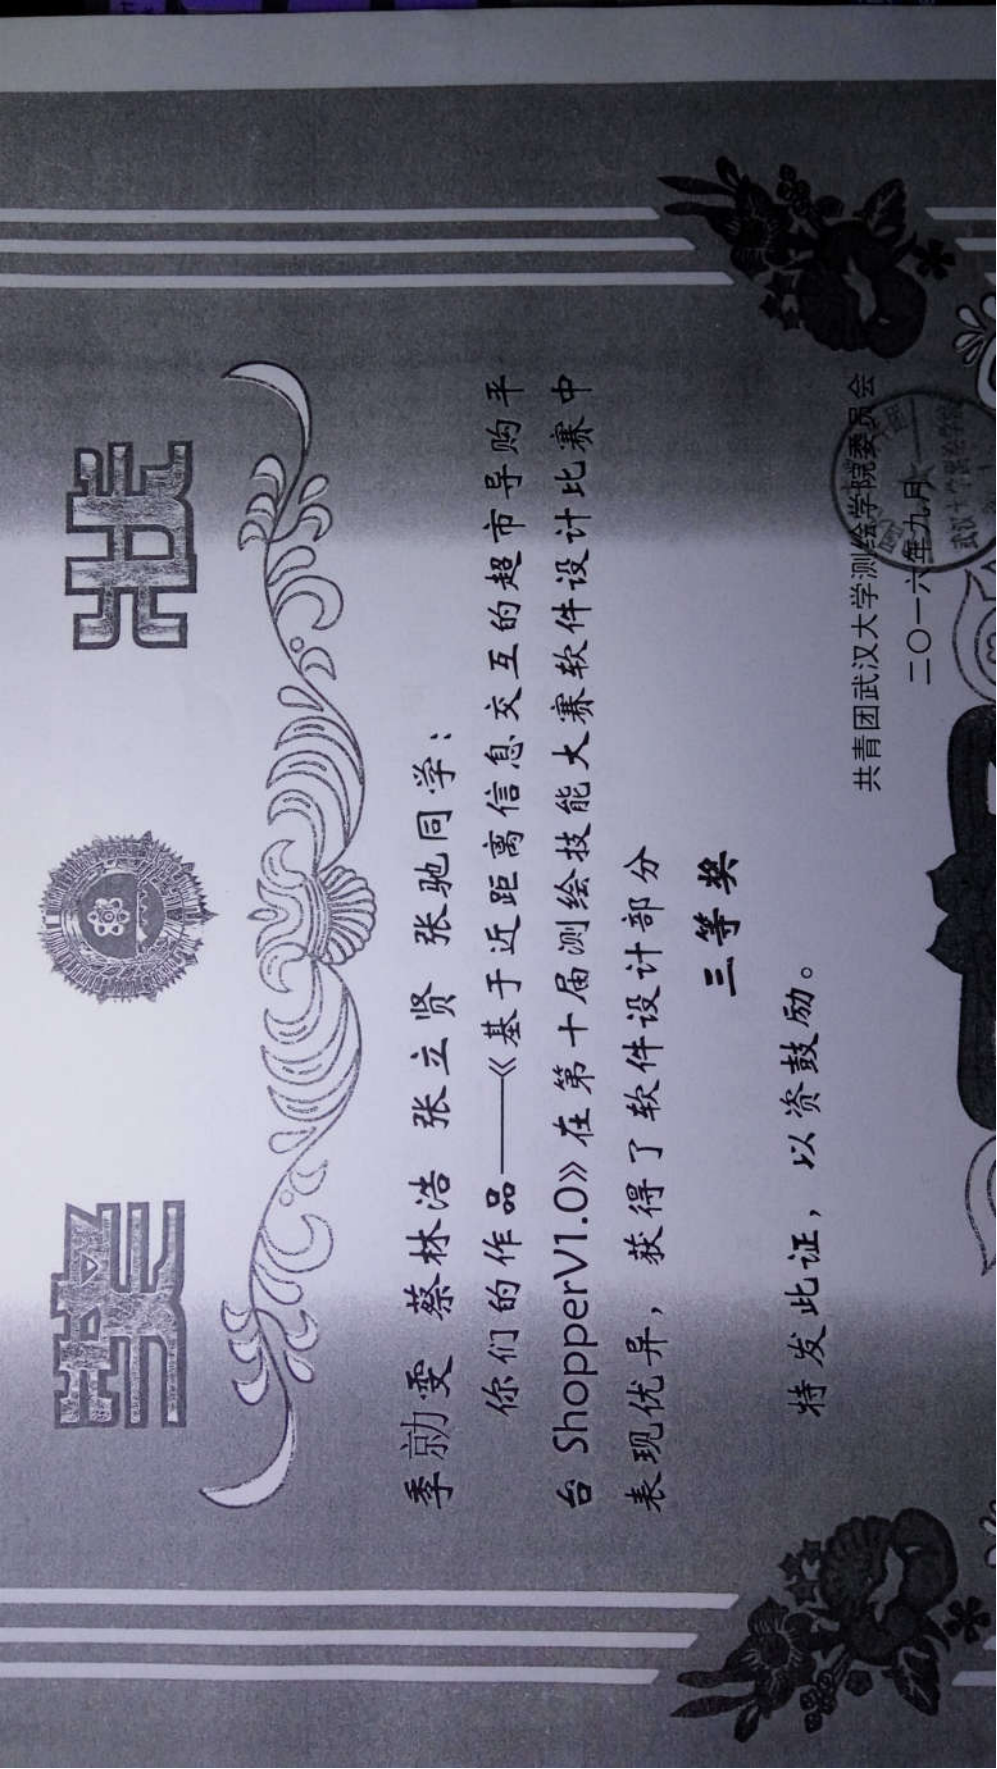 奖 状
季勍雯 蔡林浩 张立贤 张驰同学：
你们的作品——《基于近距离信息交互的超市导购平
台 ShopperV1.0》在第十届测绘技能大赛软件设计比赛中
表现优异，获得了软件设计部分
三等奖
特发此证，以资鼓励。
共青团武汉大学测绘学院委员会
二〇一六年九月